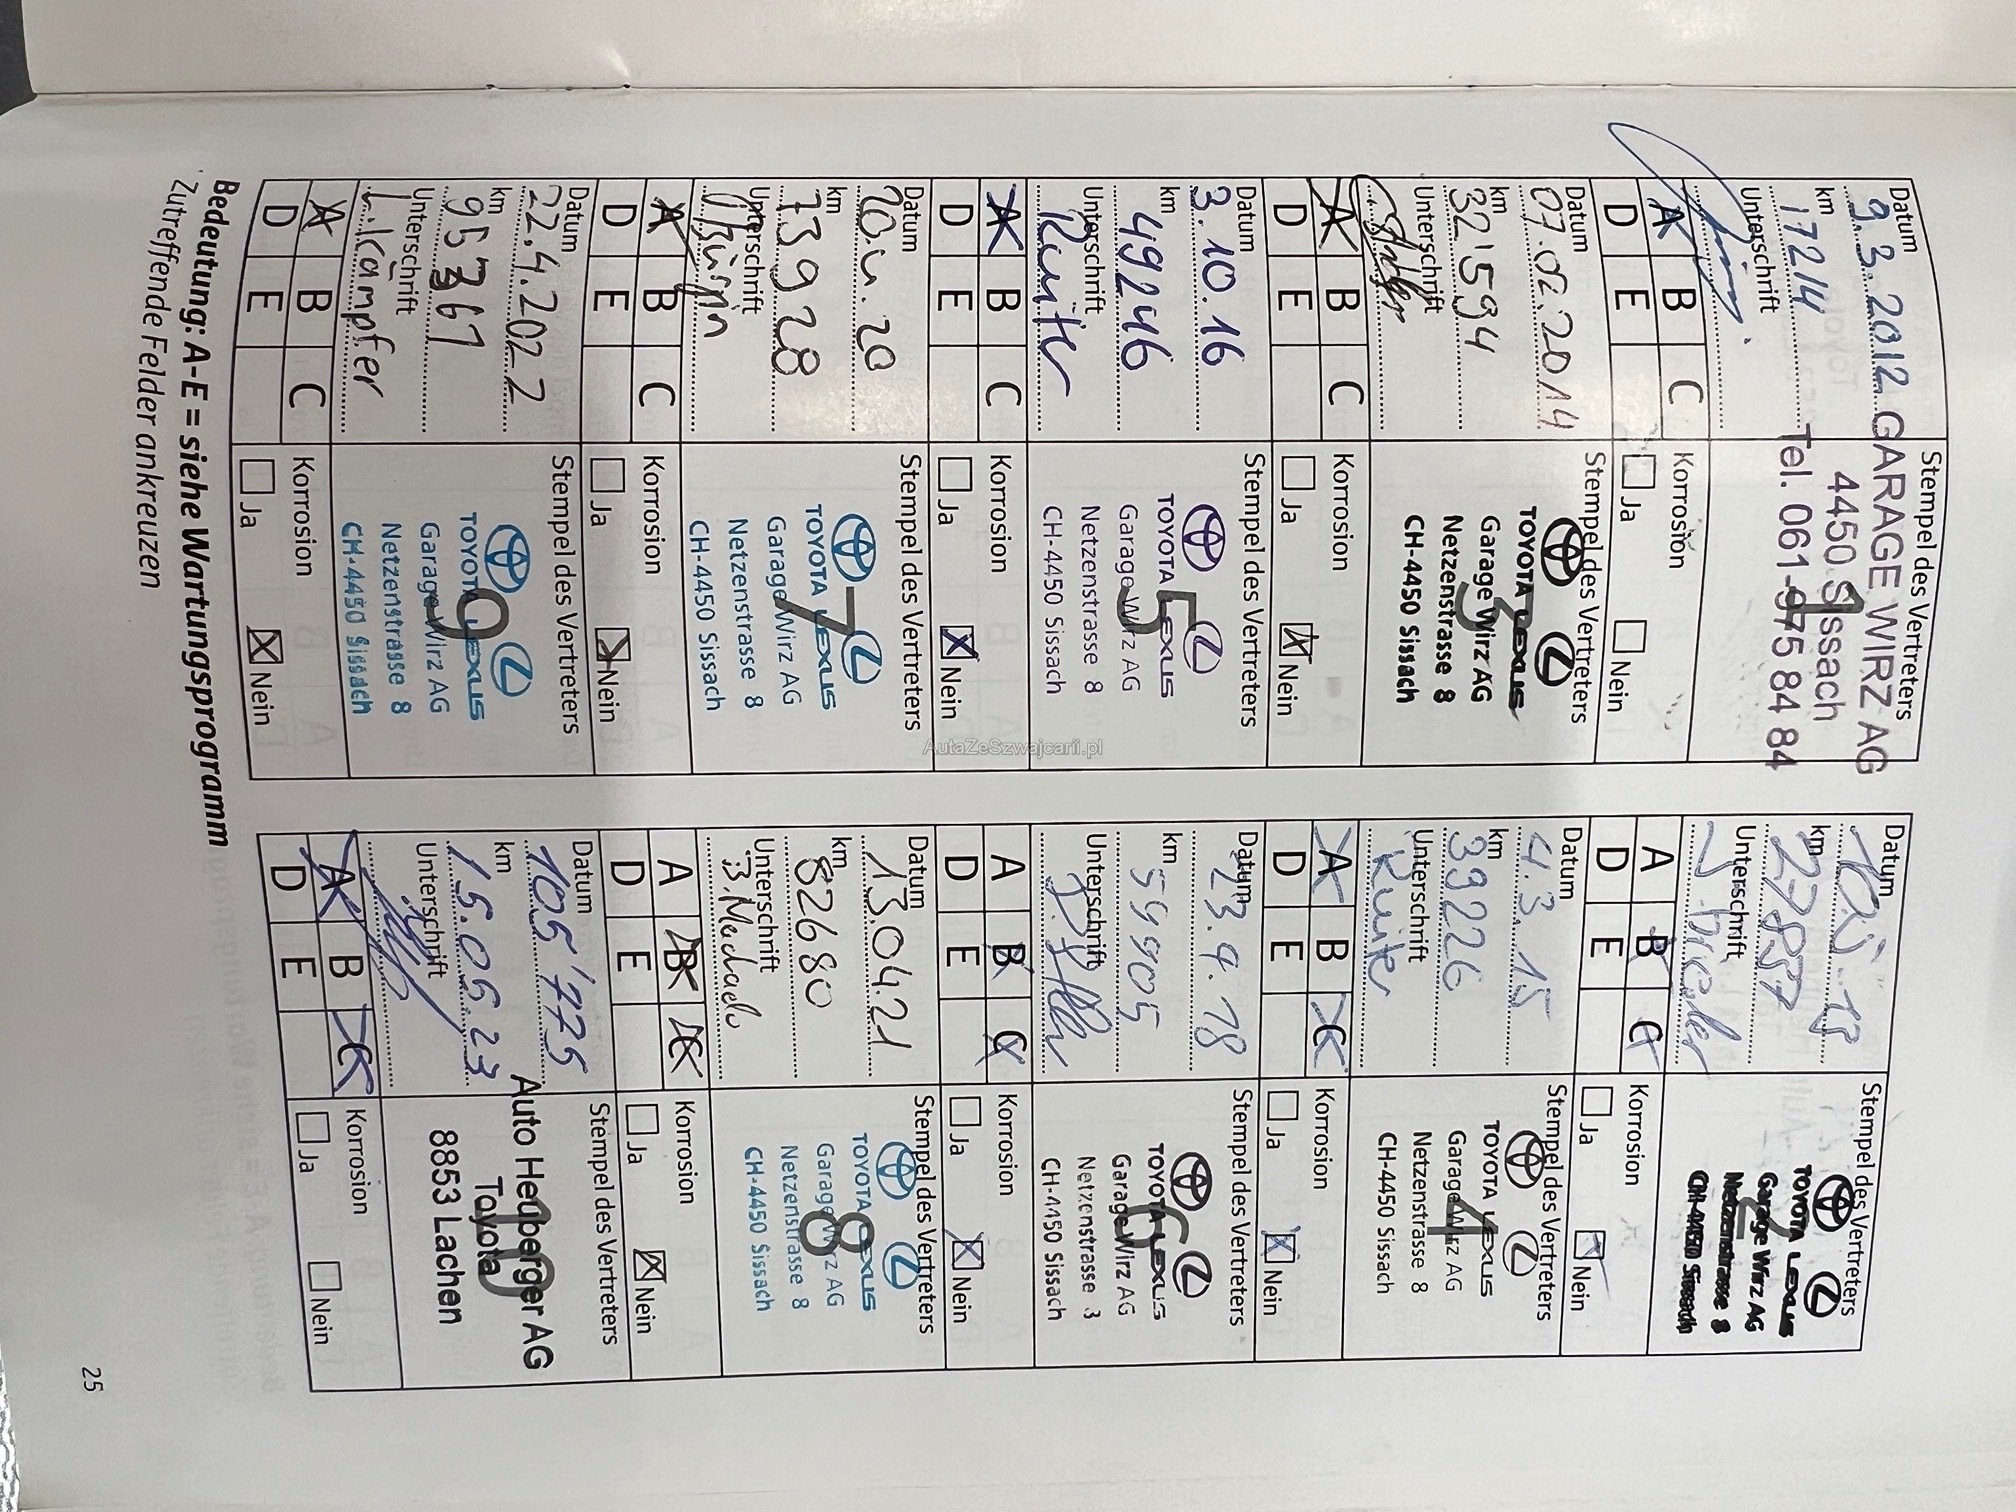 Datum
9.3.2012
km
17214
Unterschrift
Stempel des Vertreters
GARAGE WIRZ AG
4450 Sissach
Tel. 061-975 84 84
1
A B C
D E
Korrosion
Ja Nein
Datum
km
Unterschrift
Stempel des Vertreters
TOYOTA LEXUS
Garage Wirz AG
Netzenstrasse 8
CH-4450 Sissach
2
A B C
D E
Korrosion
Ja Nein
Datum
07.02.2014
km
32'594
Unterschrift
Stempel des Vertreters
TOYOTA LEXUS
Garage Wirz AG
Netzenstrasse 8
CH-4450 Sissach
3
A B C
D E
Korrosion
Ja Nein
Datum
4.3.15
km
39226
Unterschrift
Stempel des Vertreters
TOYOTA LEXUS
Garage Wirz AG
Netzenstrasse 8
CH-4450 Sissach
4
A B C
D E
Korrosion
Ja Nein
Datum
3.10.16
km
49246
Unterschrift
Stempel des Vertreters
TOYOTA LEXUS
Garage Wirz AG
Netzenstrasse 8
CH-4450 Sissach
5
A B C
D E
Korrosion
Ja Nein
Datum
23.4.18
km
59905
Unterschrift
Stempel des Vertreters
TOYOTA LEXUS
Garage Wirz AG
Netzenstrasse 8
CH-4450 Sissach
6
A B C
D E
Korrosion
Ja Nein
Datum
km
73928
Unterschrift
Stempel des Vertreters
TOYOTA LEXUS
Garage Wirz AG
Netzenstrasse 8
CH-4450 Sissach
7
A B C
D E
Korrosion
Ja Nein
Datum
13.04.21
km
82680
Unterschrift
Stempel des Vertreters
TOYOTA LEXUS
Garage Wirz AG
Netzenstrasse 8
CH-4450 Sissach
8
A B C
D E
Korrosion
Ja Nein
Datum
22.4.2022
km
95367
Unterschrift
Likämpfer
Stempel des Vertreters
TOYOTA LEXUS
Garage Wirz AG
Netzenstrasse 8
CH-4450 Sissach
9
A B C
D E
Korrosion
Ja Nein
Datum
105'775
km
15.06.23
Unterschrift
Stempel des Vertreters
Auto Heuberger AG
Toyota
8853 Lachen
10
A B C
D E
Korrosion
Ja Nein
Bedeutung: A-E = siehe Wartungsprogramm
Zutreffende Felder ankreuzen
25
AutaZeSzwajcarii.pl